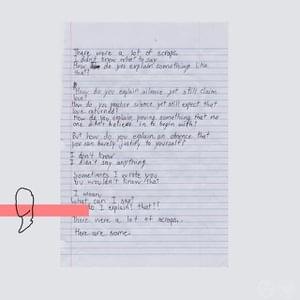 There were a lot of scraps.
I didn't know what to say
How do you explain something like
that?
How do you explain silence yet still claim
love?
How do you practice silence yet still expect that
love returned?
How do you explain proving something that no
one didn't believe in to begin with?
But how do you explain an absence that
you can barely justify to yourself?
I don't know
I didn't say anything.
Sometimes I wrote you
You wouldn't know that
I mean,
What can I say?
do I explain that?!
There were a lot of scraps.
Here are some.